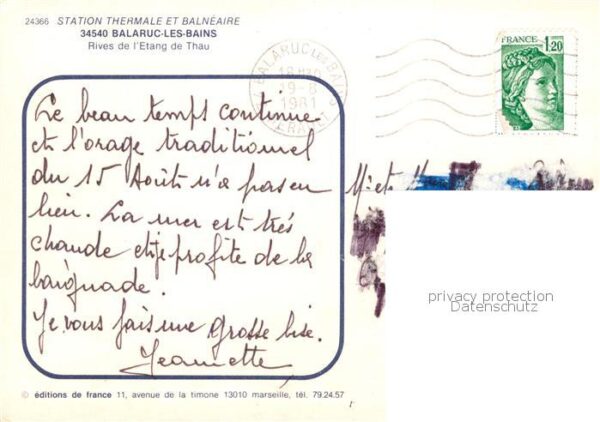 24366 STATION THERMALE ET BALNÉAIRE
34540 BALARUC-LES-BAINS
Rives de l'Etang de Thau
BALARUC LES BAINS
19-8
1981
HERAULT
FRANCE 1,20
Le beau temps continue
et l'orage traditionnel
du 15 Août n'a pas eu
lieu. La mer est très
chaude et je profite de la
baignade.
Je vous fais une grosse bise.
Jeannette
M et M
privacy protection
Datenschutz
© éditions de france 11, avenue de la timone 13010 marseille, tél. 79.24.57